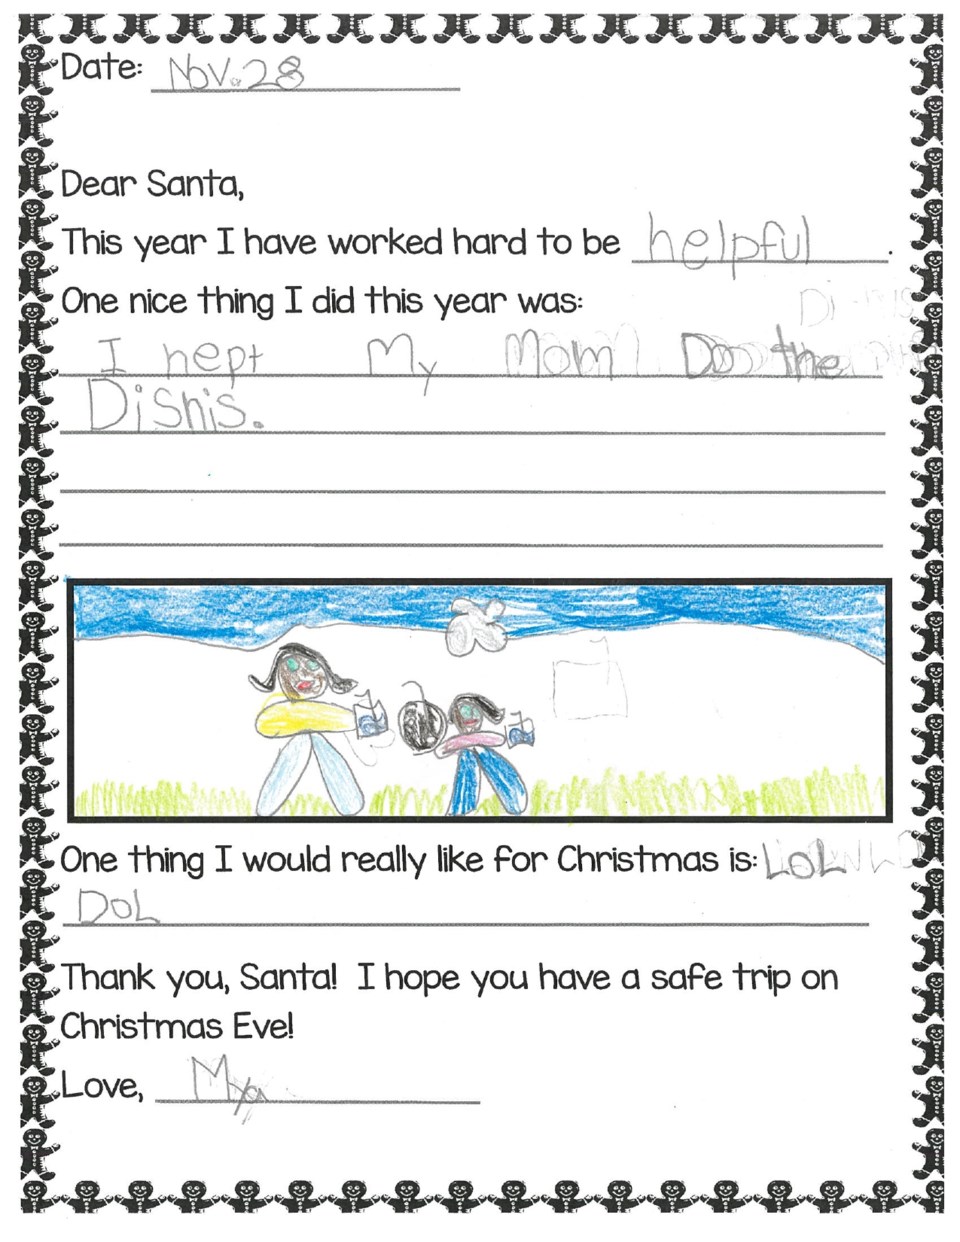 Date: Nov. 28
Dear Santa,
This year I have worked hard to be helpful.
One nice thing I did this year was:
I hept My Mom Do the
Dishis.
One thing I would really like for Christmas is: LOL
DOL
Thank you, Santa! I hope you have a safe trip on
Christmas Eve!
Love, Mya